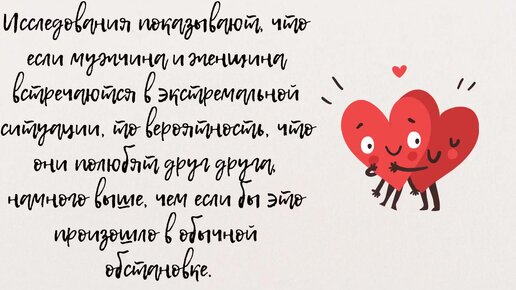 Исследования показывают, что
если мужчина и женщина
встречаются в экстремальной
ситуации, то вероятность, что
они полюбят друг друга,
намного выше, чем если бы это
произошло в обычной
обстановке.